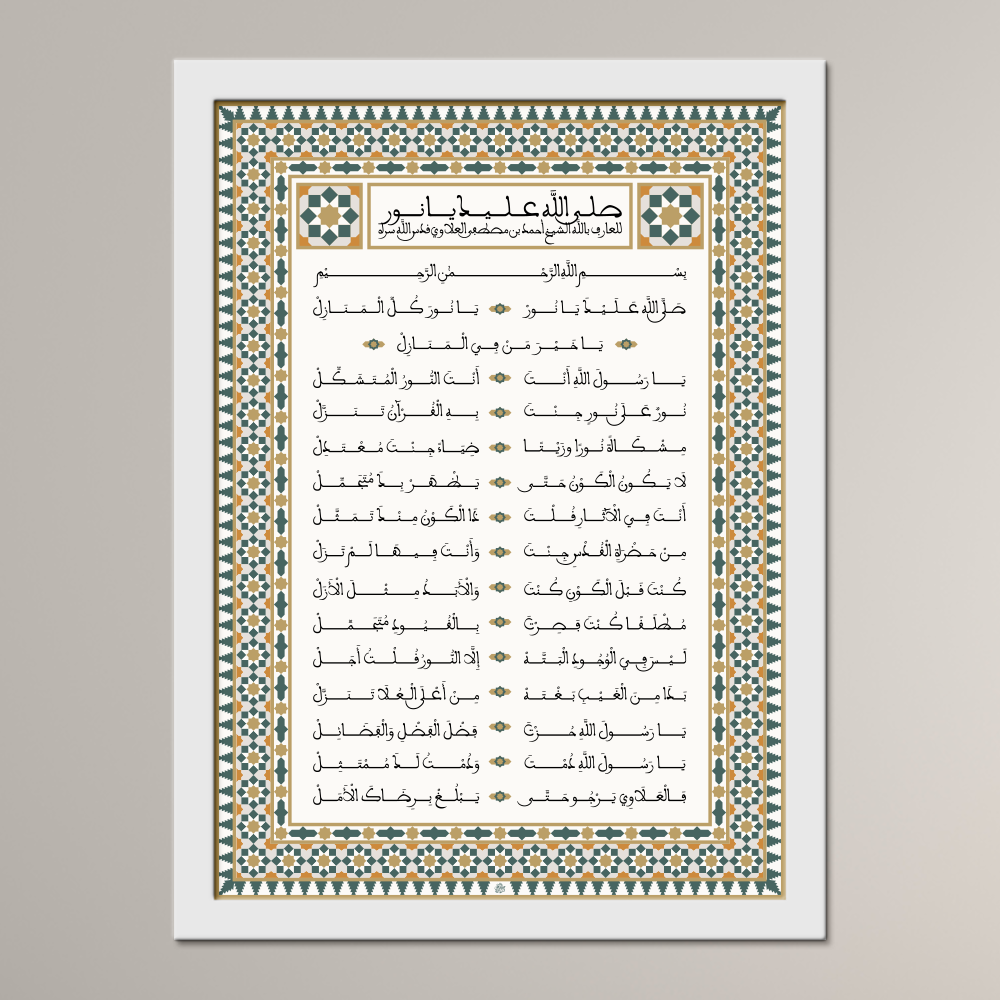 صلى الله عليك يا نور
للعارف بالله الشيخ أحمد بن مصطفى العلاوي قدس الله سره
بِسْمِ اللَّهِ الرَّحْمَٰنِ الرَّحِيمِ
صَلَّى اللَّه عَلَيْكَ يَا نُورْ يَا نُورَ كُلِّ الْمَنَازِلْ
يَا خَيْرَ مَنْ فِي الْمَنَازِلْ
يَا رَسُولَ اللَّهِ أَنْتَ أَنْتَ النُّورُ الْمُتَشَكِّلْ
نُورْ عَلَى نُورٍ جِئْتَ بِهِ الْقُرْآنُ تَنَزَّلْ
مِشْكَاةَ نُورًا وَزَيْتَا ضِيَاءً جِئْتَ مُعْتَدِلْ
لَا يَكُونُ الْكَوْنُ حَتَّى يَظْهَرْ بِكَ مُتَجَمِّلْ
أَنْتَ فِي الْآثَارِ قُلْتَ ذَا الْكَوْنُ مِنْكَ تَمَثَّلْ
مِنْ حَضْرَةِ الْقُدْسِ جِئْتَ وَأَنْتَ فِيهَا لَمْ تَزَلْ
كُنْتَ قَبْلَ الْكَوْنِ كُنْتَ وَالْأَبَدُ مِثْلَ الْأَزَلْ
مُطْلَقًا كُنْتَ فَصِرْتَ بِالْقُيُودِ مُتَجَمِّلْ
لَيْسَ فِي الْوُجُودِ الْبَتَّةَ إِلَّا النُّورُ قُلْتُ أَجَلْ
بَدَا مِنَ الْغَيْبِ بَغْتَةً مِنْ أَعْلَى الْعُلَا تَنَزَّلْ
يَا رَسُولَ اللَّهِ حُزْتَ فَضْلَ الْفَضْلِ وَالْفَضَائِلْ
يَا رَسُولَ اللَّهِ دُمْتَ وَدُمْتُ لَكَ مُمْتَثِلْ
فَالْعَلَاوِي يَرْجُو حَتَّى يَبْلُغْ بِرِضَاكَ الْأَمَلْ